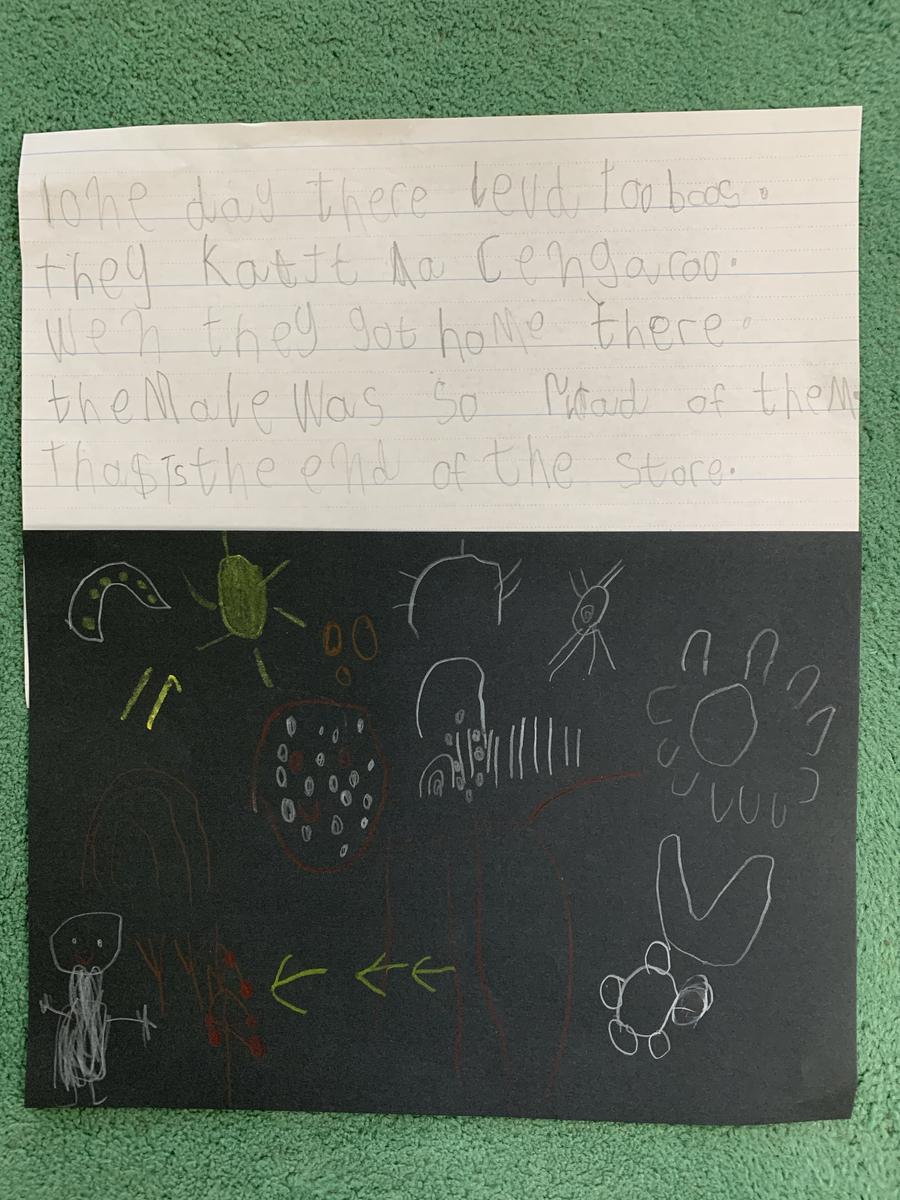 1one day there levd too boos.
they Kattt Aa Cengaroo.
Wen they got home there.
the Male Was So Mad of theM.
Thas Is the end of the store.